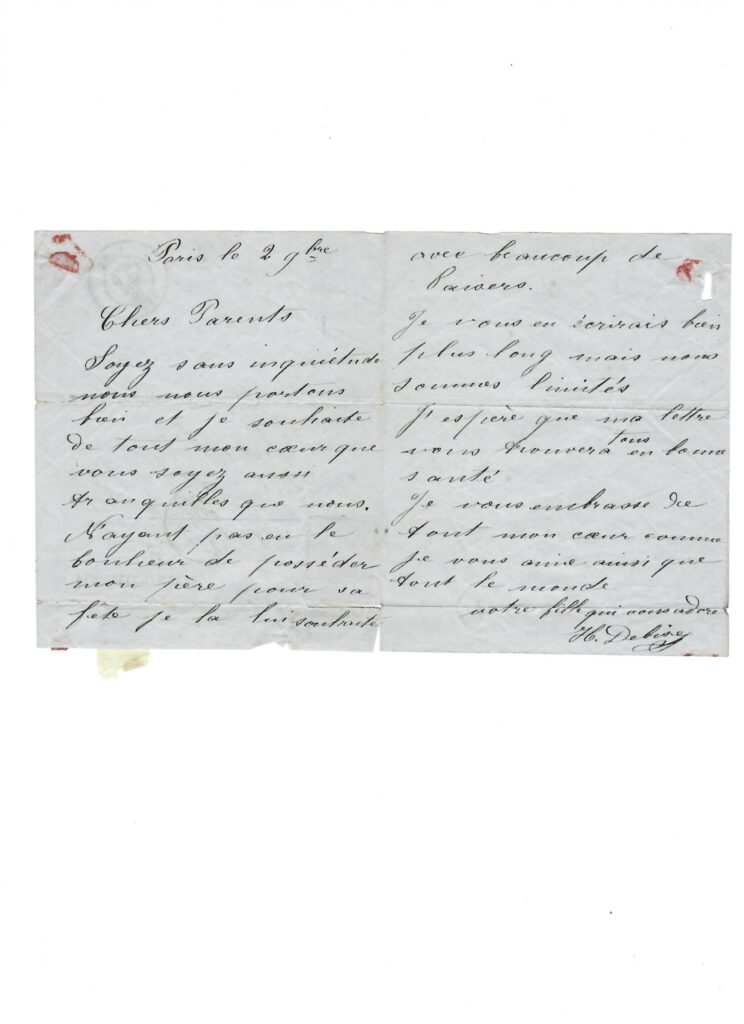 Paris le 2 9bre
Chers Parents
Soyez sans inquiétude
nous nous portons
bien et je souhaite
de tout mon cœur que
vous soyez aussi
tranquilles que nous.
N'ayant pas eu le
bonheur de posséder
mon père pour sa
fête je la lui souhaite
avec beaucoup de
Baisers.
Je vous en écrirais bien
plus long mais nous
sommes limités
J'espère que ma lettre
vous trouvera tous en bonne
santé
Je vous embrasse de
tout mon cœur comme
je vous aime ainsi que
tout le monde
votre fille qui vous adore
H. Debise